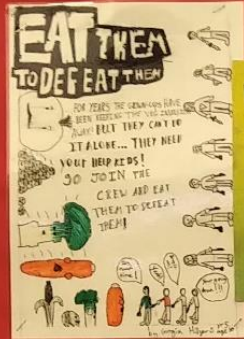 EAT THEM
TO DEFEAT THEM
FOR YEARS THE GROWN-UPS HAVE
BEEN KEEPING THE VEG
AWAY! BUT THEY CAN'T DO
IT ALONE... THEY NEED
YOUR HELP KIDS!
SO JOIN THE
CREW AND EAT
THEM TO DEFEAT
THEM!
by Georgia